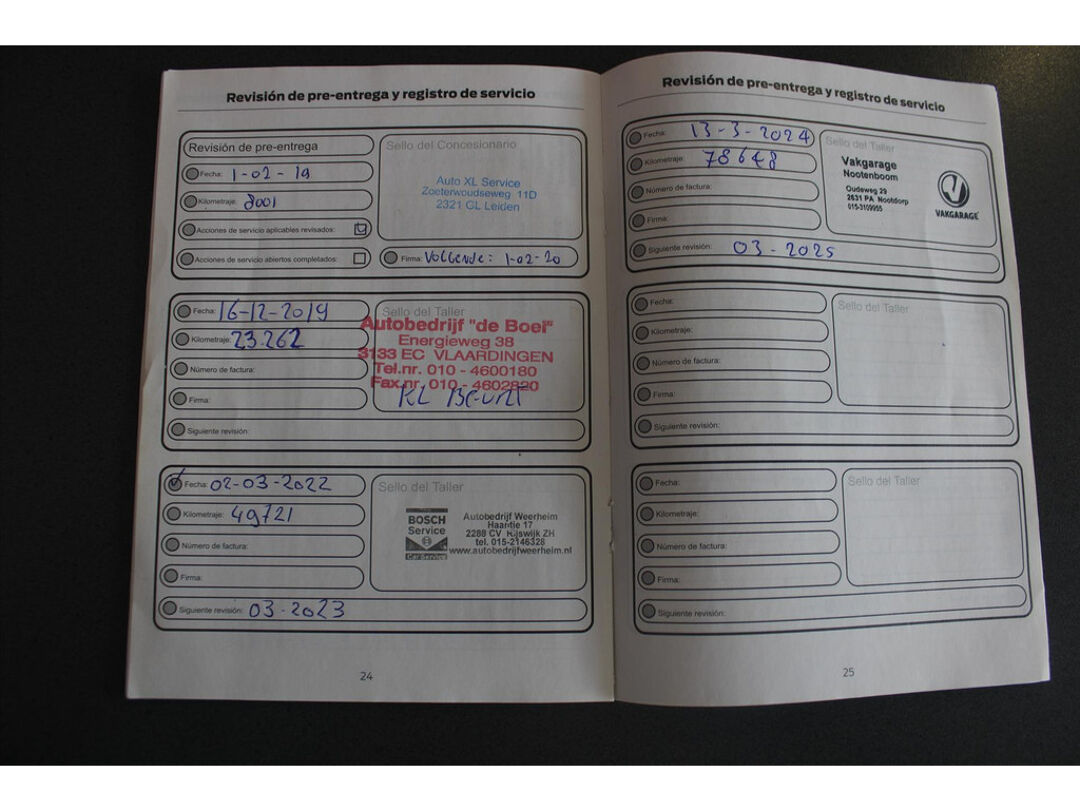 Revisión de pre-entrega y registro de servicio
Revisión de pre-entrega
Fecha: 1-02-19
Kilometraje: 8001
Acciones de servicio aplicables revisados:
Acciones de servicio abiertos completados:
Sello del Concesionario
Auto XL Service
Zoeterwoudseweg 11D
2321 GL Leiden
Firma: Volgende: 1-02-20
Fecha: 16-12-2019
Kilometraje: 23.262
Número de factura:
Firma:
Siguiente revisión:
Sello del Taller
Autobedrijf "de Boei"
Energieweg 38
3133 EC VLAARDINGEN
Tel.nr. 010 - 4600180
Fax.nr. 010 - 4602820
KL Beurt
Fecha: 02-03-2022
Kilometraje: 49721
Número de factura:
Firma:
Siguiente revisión: 03-2023
Sello del Taller
BOSCH
Service
Car Service
Autobedrijf Weerheim
Haantje 17
2288 CV Rijswijk ZH
tel. 015-2146328
www.autobedrijfweerheim.nl
24
Revisión de pre-entrega y registro de servicio
Fecha: 13-3-2024
Kilometraje: 78648
Número de factura:
Firma:
Siguiente revisión: 03-2025
Sello del Taller
Vakgarage
Nootenboom
Oudeweg 29
2631 PA Nootdorp
015-3109955
VAKGARAGE
Fecha:
Kilometraje:
Número de factura:
Firma:
Siguiente revisión:
Sello del Taller
Fecha:
Kilometraje:
Número de factura:
Firma:
Siguiente revisión:
Sello del Taller
25